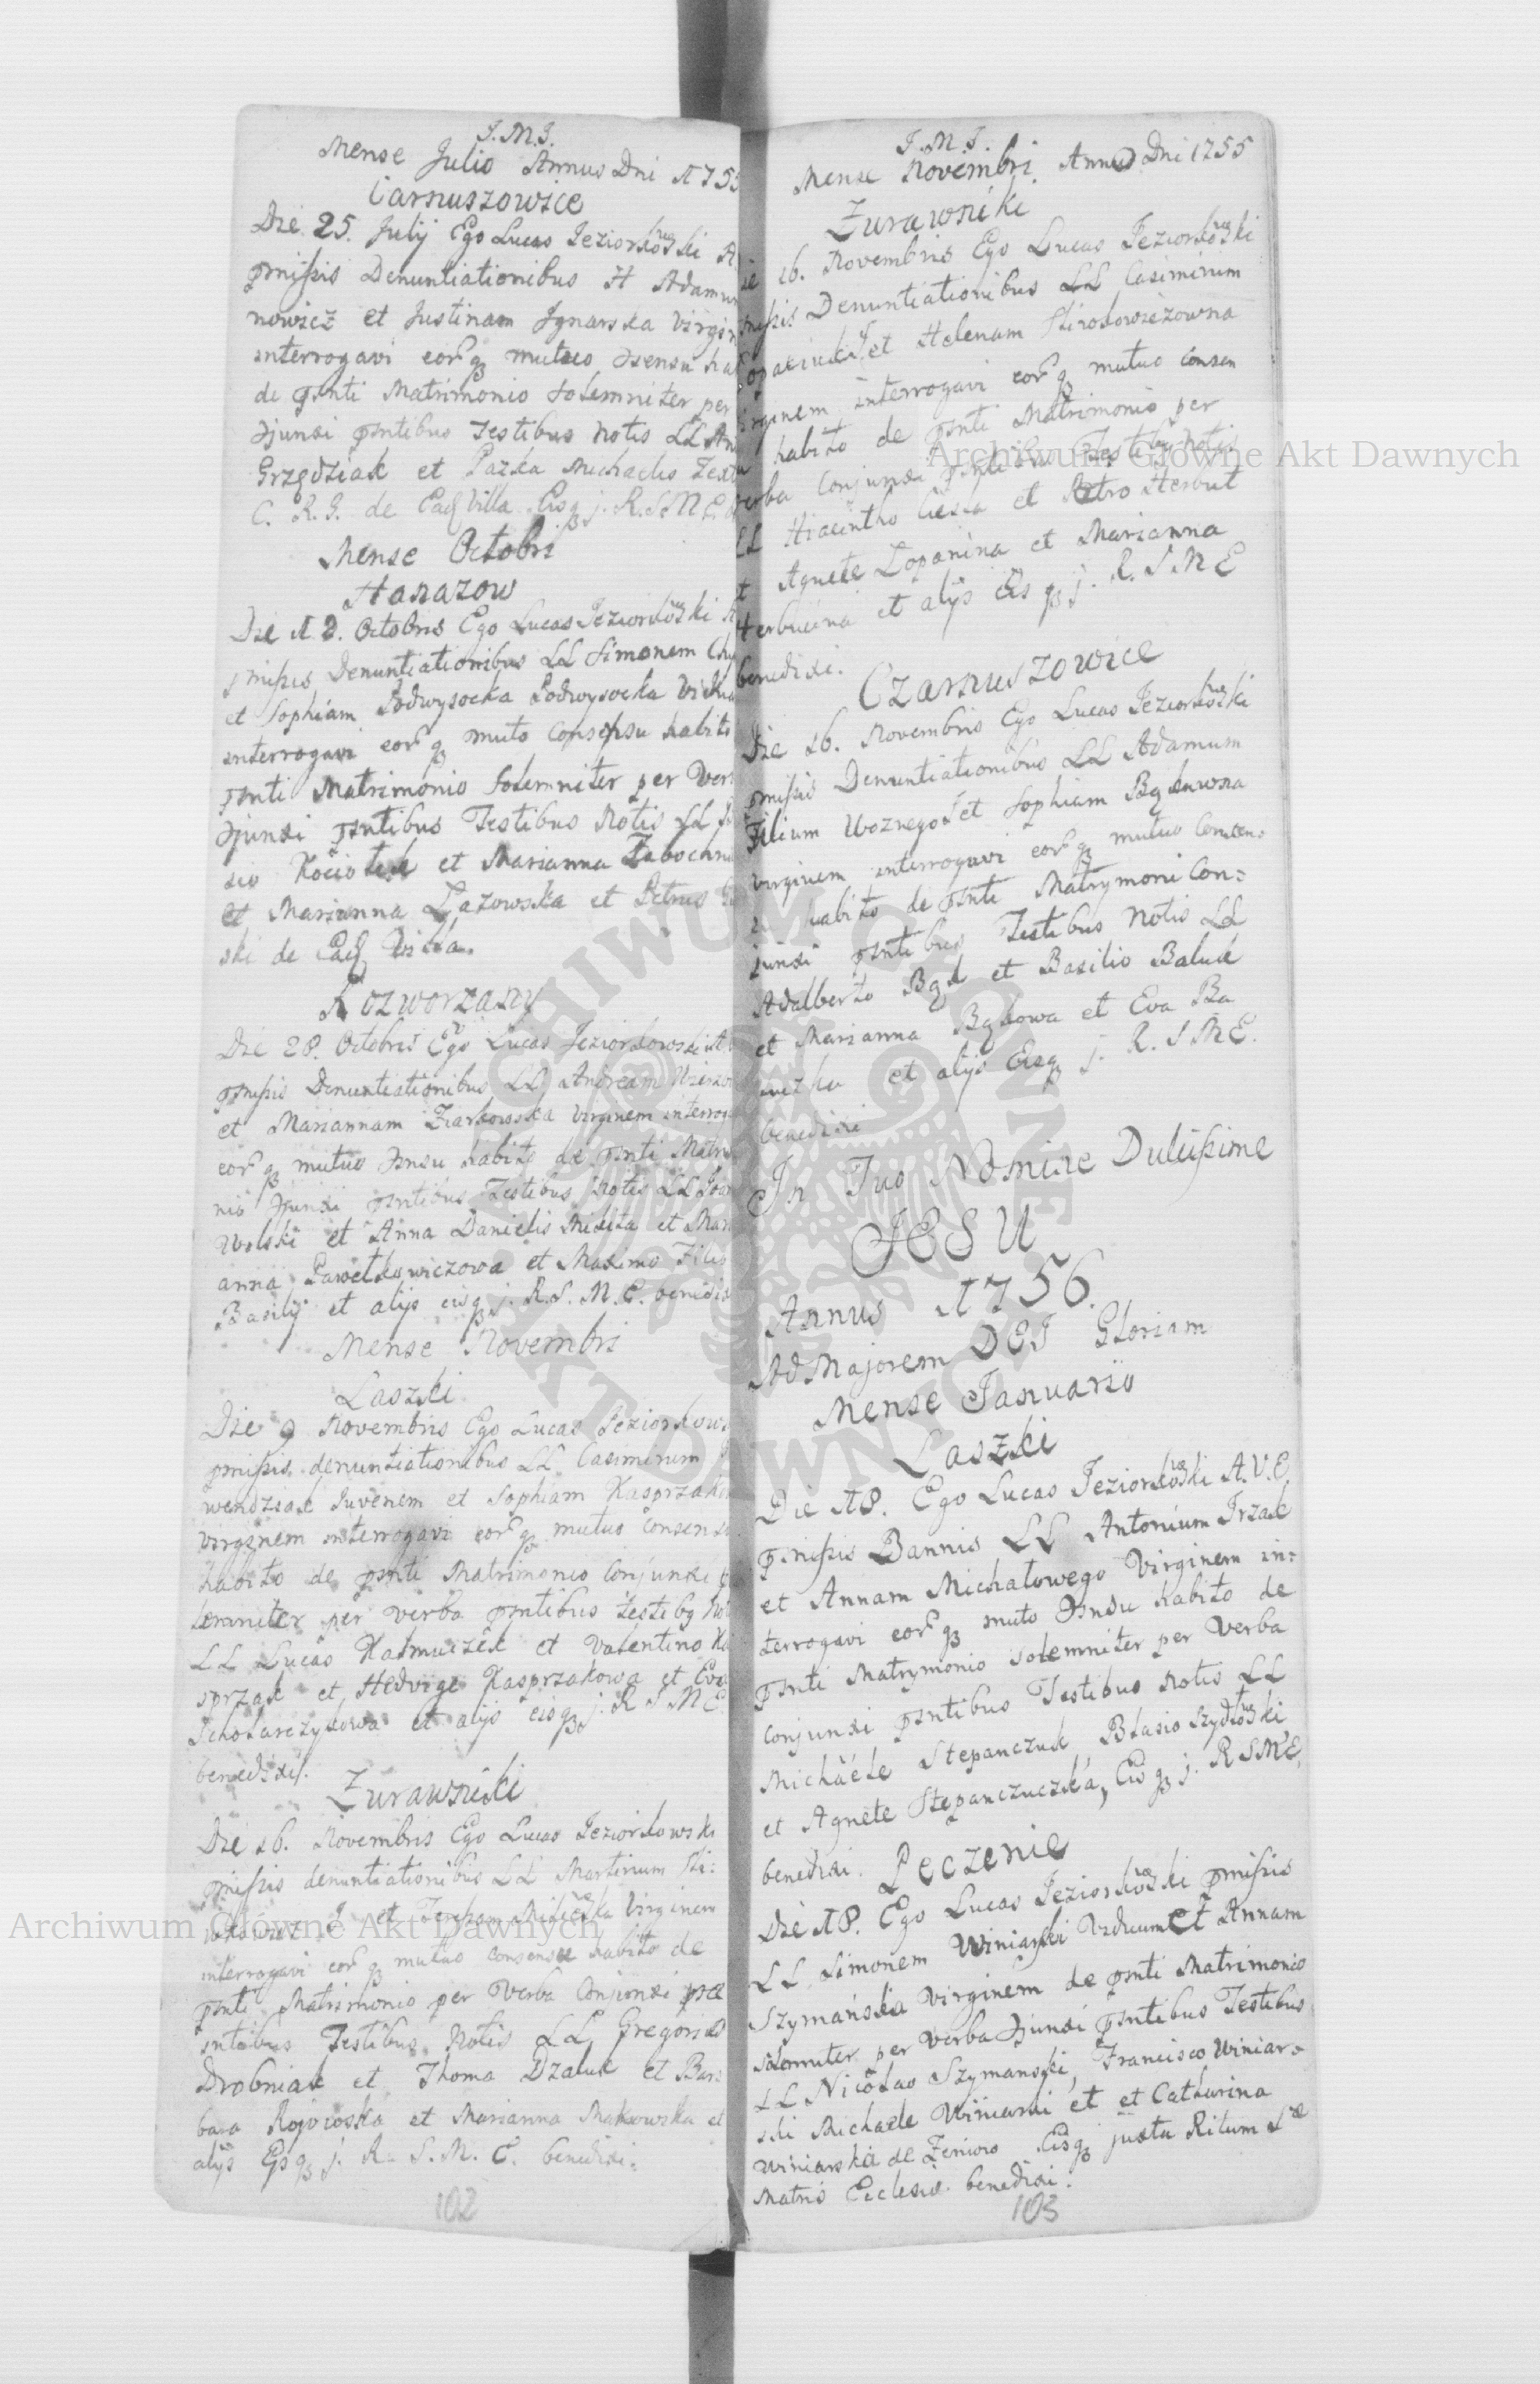 J.M.J.
Mense Julio Annus Dni 1755
Czarnuszowice
Die 25. Julij Ego Lucas Jeziorkowski
pmissis Denuntiationibus Adamum
nowicz et Justinam Jgnarska Virgin
interrogavi eorq mutuo 
de psnti Matrimonio Solemniter per
psntibus Testibus Notis LL
Grzędziak et Pazka Michaelis
C. R. J. de Eadq Villa Eisq j. R. S M E
Mense Octobri
Hanazow
Die 12. Octobris Ego Lucas Jeziorkowski
pmissis Denuntiationibus LL Simonem
et Sophiam Podwysocka Podwysocka
interrogavi eorq muto Consensu habito
psnti Matrimonio Solemniter per Ver
psntibus Testibus Notis LL
et Marianna
et Marianna Łazowska et Petrus
ski de Eadq Villa.
Rozworzany
Die 28. Octobris Ego Lucas Jeziorkowski
pmissis Denuntiationibus LL Andream
et Mariannam Ziarkowska Virginem interrog
eorq mutuo habito de psnti Matri
nio psntibus Testibus Notis LL Joan
Wolski et Anna Danielis Mikita et Mari
anna Pawełkowiczowa et Maximo Filio
Basilij et alijs eisq j. R. S. M. E. benedixi
Mense Novembri
Laszki
Die 9 Novembris Ego Lucas Jeziorkows
pmissis denuntiationibus LL Casimirum
wendziak Juvenem et Sophiam Kasprzakow
Virginem interrogavi eorq mutuo Consensu
habito de psnti Matrimonio Conjunxi
lemniter per verba psntibus testibq Not
LL Lucas Kasmuczek et Valentino Ka
sprzak et Hedvige Kasprzakowa et Eva
Scholarczykowa et alijs eisq j. R S M E.
benedixi.
Zurawniki
Die 16. Novembris Ego Lucas Jeziorkowski
pmissis denuntiationibus LL Martinum
et Virginem
interrogavi eorq mutuo consensu habito de
psnti Matrimonio per Verba Conjunxi præ
sntibus Testibus Notis LL Gregorio
Drobniak et Thoma Dzaluk et Bar:
bara Rojowska et Marianna Makowska et
alijs Eisq j. R. S. M. E. benedixi.
102
J.M.J.
Mense Novembri Annus Dni 1755
Zurawniki
16. Novembris Ego Lucas Jeziorkowski
missis Denuntiationibus LL Casimirum
et Helenam
irginem interrogavi eorq mutuo consen
habito de psnti Matrimonio per
erba Conjunxi psntibus Testibq Notis
LL Hiacintho et Petro Herbut
t Agnete Łopanina et Marianna
Herbucina et alijs Eisq j. R. S M E
benedixi.
Czarnuszowice
Die 16. Novembris Ego Lucas Jeziorkowski
pmissis Denuntiationibus LL Adamum
Filium Woznego et Sophiam Bąkuwna
Virginem interrogavi eorq mutuo Consen=
su habito de psnti Matrymoni Con=
junxi psntibus Testibus Notis LL
Adalberto Bąk et Basilio Baluk
et Marianna Bąkowa et Eva Ba
et alijs Eisq j. R. S M E.
benedixi
In Tuo Nomine Dulcissime
JESU
Annus 1756.
Ad Majorem DEI Gloriam
Mense Januario
Laszki
Die 18. Ego Lucas Jeziorkowski A.V.E.
pmissis Bannis LL Antonium Trzak
et Annam Michałowego Virginem in=
terrogavi eorq muto habito de
psnti Matrymonio solemniter per Verba
Conjunxi psntibus Testibus Notis LL
Michaele Stepanczuk Blasio Szydłowski
et Agnete Stepanczuczka, Eisq j. R S M E.
benedixi.
Peczenie
Die 18. Ego Lucas Jeziorkowski pmissis
LL Simonem Winiarski Viduum et Annam
Szymańska Virginem de psnti Matrimonio
solemniter per Verba psntibus Testibus
LL Nicolao Szymanski, Francisco Winiar=
ski Michaele Winiarski et et Catharina
Winiarska de Zeniow Eisq juxta Ritum Sæ
Matris Ecclesiæ benedixi.
103
Archiwum Główne Akt Dawnych
Archiwum Główne Akt Dawnych
ARCHIWUM GŁÓWNE AKT DAWNYCH